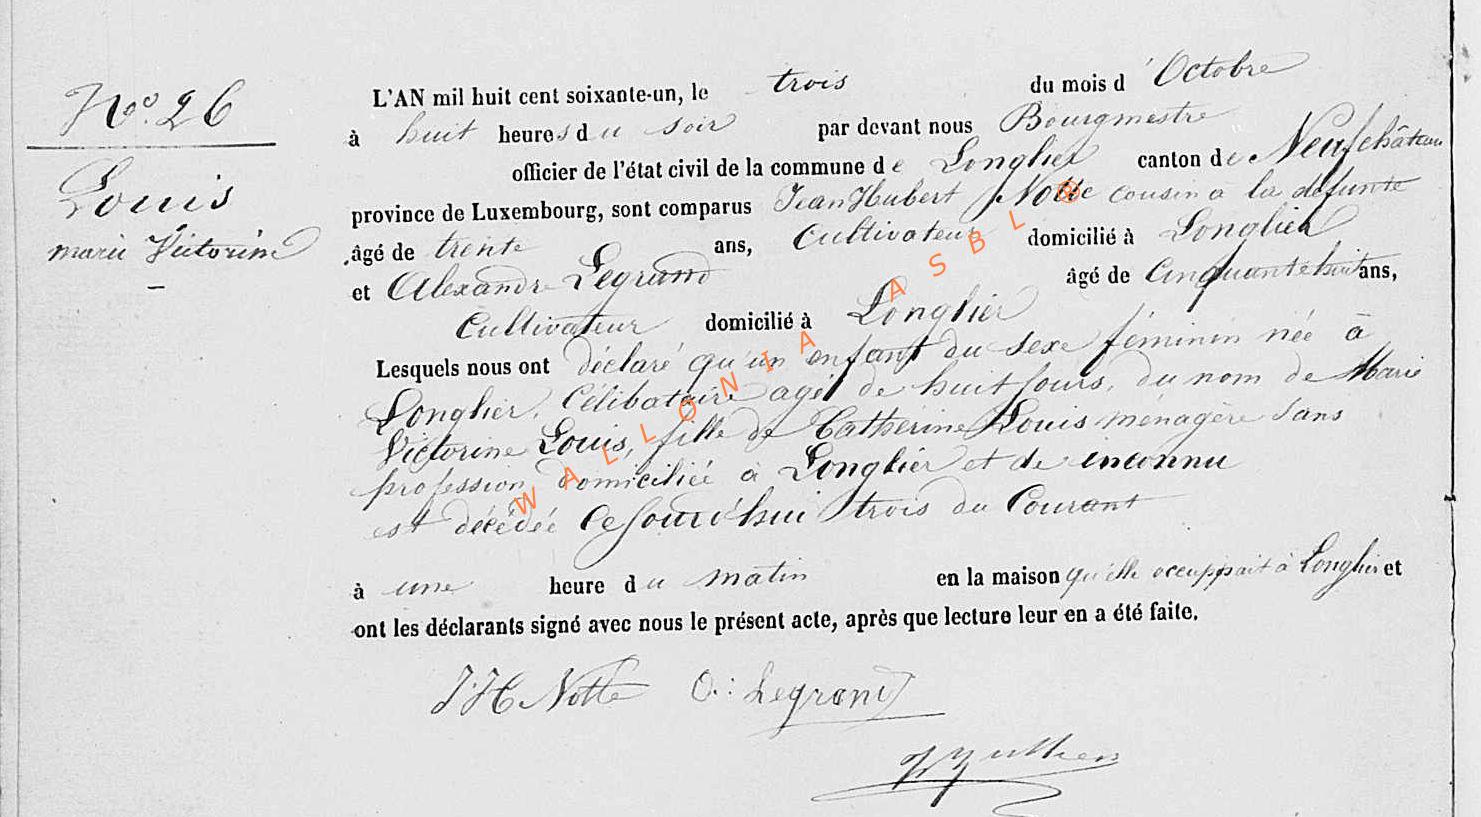 No. 26
Louis
marie Victorine
L'AN mil huit cent soixante-un, le trois du mois d'Octobre
à huit heures du soir par devant nous Bourgmestre
officier de l'état civil de la commune de Longlier canton de Neufchâteau
province de Luxembourg, sont comparus Jean Hubert Notte cousin a la défunte
âgé de trente ans, Cultivateur domicilié à Longlier
et Alexandre Legrand âgé de Cinquante huit ans,
Cultivateur domicilié à Longlier
Lesquels nous ont déclaré qu'un enfant du sexe féminin née à
Longlier, Célibataire agé de huit Jours, du nom de Marie
Victorine Louis, fille de Catherine Louis ménagère Sans
profession domiciliée à Longlier et de inconnu
est décédée Ce Jourd'hui trois du Courant
à une heure du matin en la maison qu'elle occuppait à Longlier et
ont les déclarants signé avec nous le présent acte, après que lecture leur en a été faite.
JH Notte Legrand
WALLONIA ASBL ®